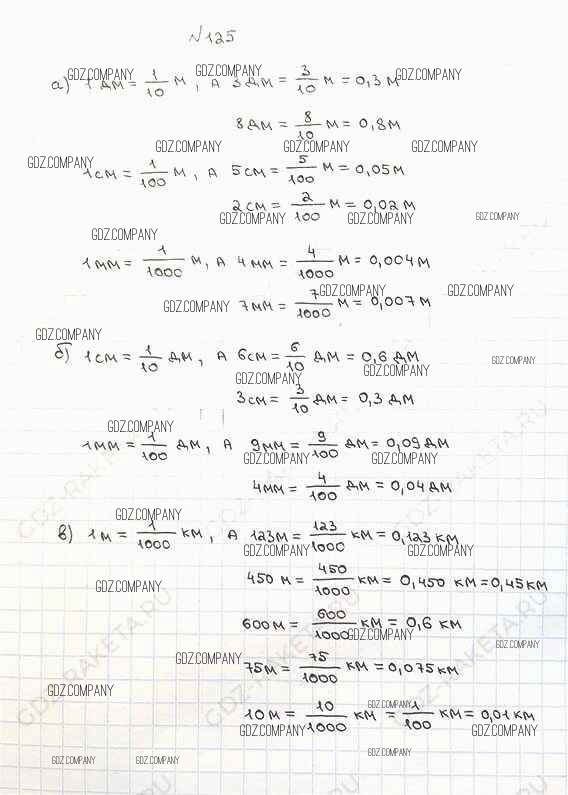 №125
а) 1 дм = 1/10 м, а 3 дм = 3/10 м = 0,3 м
8 дм = 8/10 м = 0,8 м
1 см = 1/100 м, а 5 см = 5/100 м = 0,05 м
2 см = 2/100 м = 0,02 м
1 мм = 1/1000 м, а 4 мм = 4/1000 м = 0,004 м
7 мм = 7/1000 м = 0,007 м
б) 1 см = 1/10 дм, а 6 см = 6/10 дм = 0,6 дм
3 см = 3/10 дм = 0,3 дм
1 мм = 1/100 дм, а 9 мм = 9/100 дм = 0,09 дм
4 мм = 4/100 дм = 0,04 дм
в) 1 м = 1/1000 км, а 123 м = 123/1000 км = 0,123 км
450 м = 450/1000 км = 0,450 км = 0,45 км
600 м = 600/1000 км = 0,6 км
75 м = 75/1000 км = 0,075 км
10 м = 10/1000 км = 1/100 км = 0,01 км
GDZ.COMPANY
GDZ-RAKETA.RU